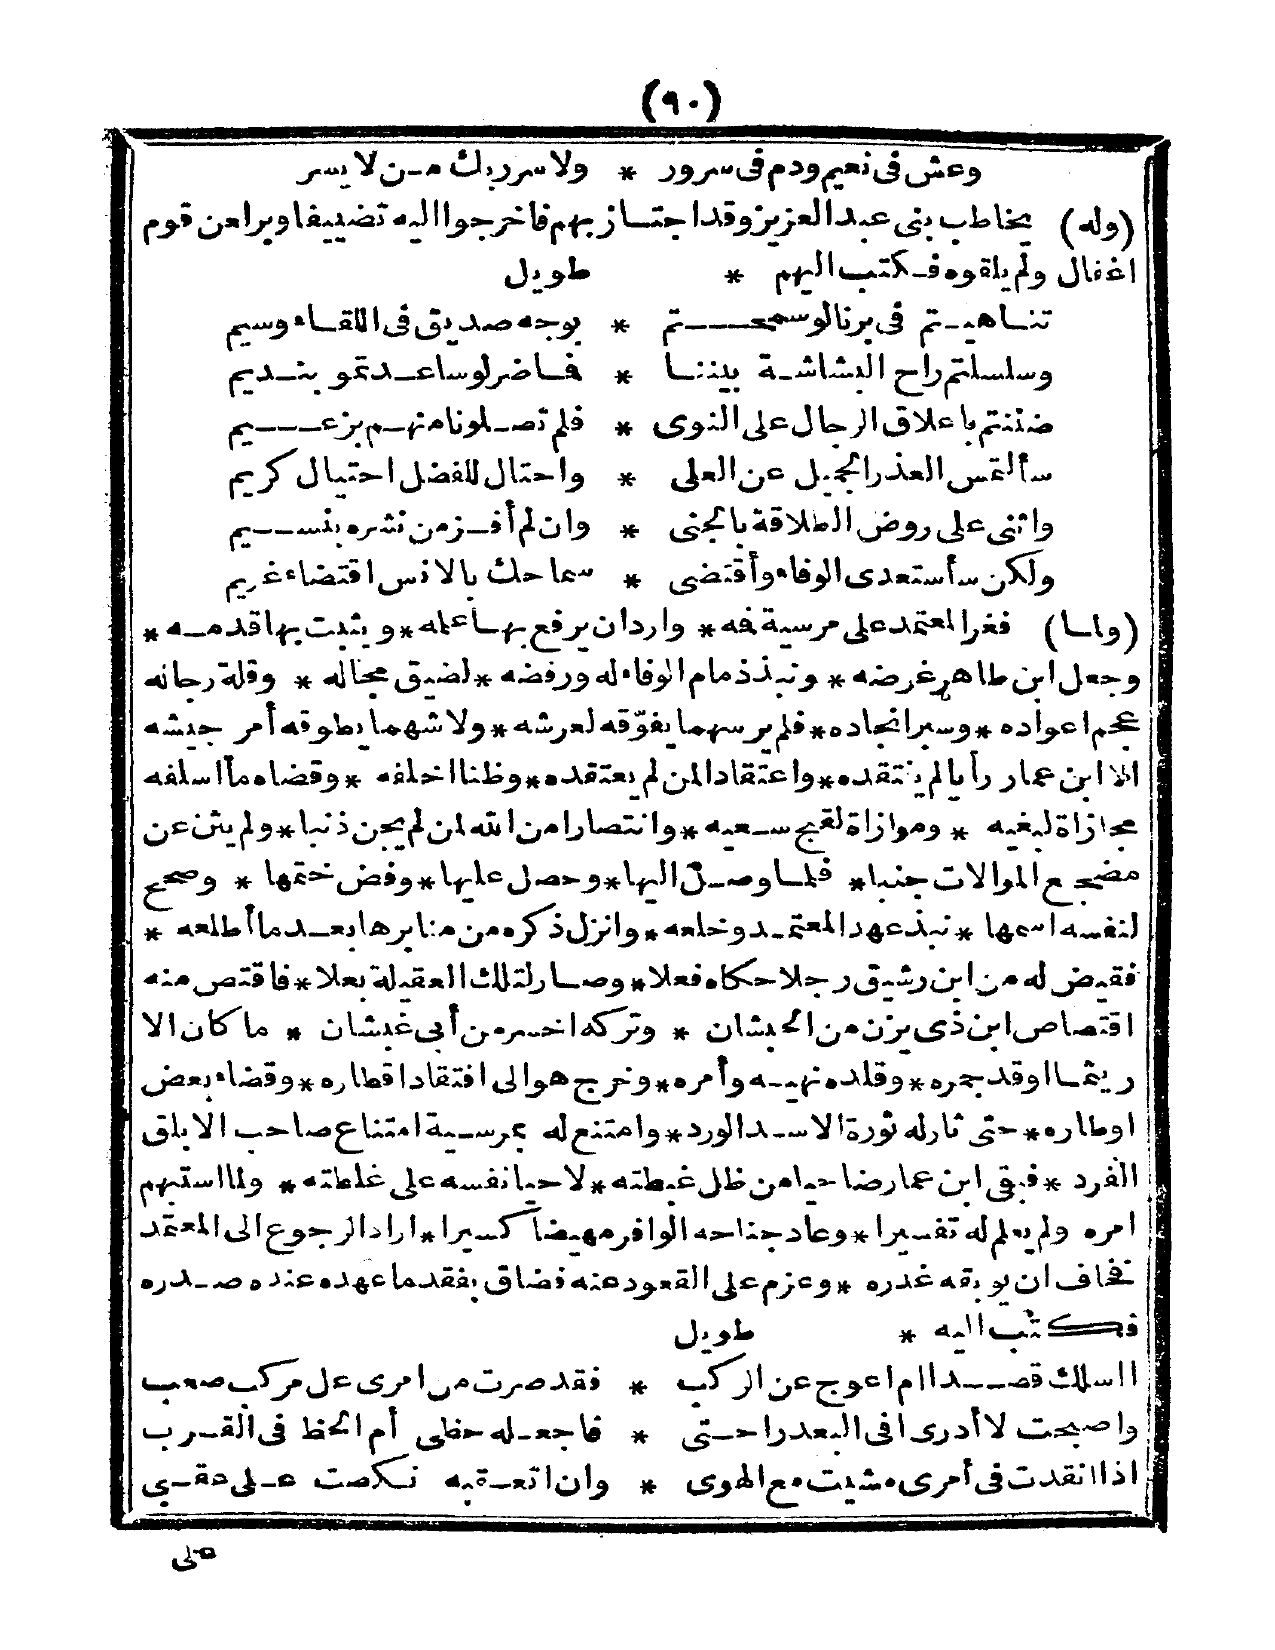 (٩٠)
وعش فى نعيم ودم فى سرور * ولا سر ربك من لا يسر
(وله) يخاطب بنى عبد العزيز وقد اجتاز بهم فاخرجوا اليه تضييفا وبرا عن قوم
اغفال ولم يلقوه فكتب اليهم * طويل
تناهيتم فى برنا لو سمحتم * بوجه صديق فى اللقاء وسيم
وسلسلتم راح البشاشة بيننا * فما ضر لو ساعدتمو بنديم
ضننتم باعلاق الرجال على النوى * فلم تصلونا منهم بزعيم
سألتمس العذر الجميل عن العلى * واحتال للفضل احتيال كريم
واثنى على روض الطلاقة بالجنى * وان لم أفز من نشره بنسيم
ولكن سأستعدى الوفاء وأقتضى * سماحك بالانس اقتضاء غريم
(ولما) فغر المعتمد على مرسية فمه * واراد ان يرفع بها علمه * ويثبت بها قدمه *
وجعل ابن طاهر غرضه * ونبذ ذمام الوفاء له ورفضه * لضيق مجاله * وقلة رجاله
عجم اعواده * وسبر انجاده * فلم ير سهما يفوّقه لعرشه * ولا شهما يطوقه أمر جيشه
الا ابن عمار رأيا لم ينتقده * واعتقادا لمن لم يعتقده * وظنا اخلفه * وقضاء ما أسلفه
مجازاة لبغيه * وموازاة لقبح سعيه * وانتصارا من الله لمن لم يجن ذنبا * ولم يثن عن
مضجع الموالات جنبا * فلما وصل اليها * وحصل عليها * وفض ختمها * وصحح
لنفسه اسمها * نبذ عهد المعتمد وخلعه * وانزل ذكره من منابرها بعد ما أطلعه *
فقيض له من ابن رشيق رجلا حكاه فعلا * وصار لتلك العقيلة بعلا * فاقتص منه
اقتصاص ابن ذى يزن من الحبشان * وتركه اخسر من أبى غبشان * ما كان الا
ريثما اوقد جمره * وقلده نهيه وأمره * وخرج هو الى افتقاد اقطاره * وقضاء بعض
اوطاره * حتى ثار له ثورة الاسد الورد * وامتنع له بمرسية امتناع صاحب الابلق
الفرد * فبقى ابن عمار ضاحيا من ظل غبطته * لاحيا نفسه على غلطته * ولما استبهم
امره ولم يعلم له تفسيرا * وعاد جناحه الوافر مهيضا كسيرا * اراد الرجوع الى المعتمد
فخاف ان يوبقه غدره * وعزم على القعود عنه فضاق بفقد ما عهده عنده صدره
فكتب اليه * طويل
اأسلك قصدا ام اعوج عن الركب * فقد صرت من امرى على مركب صعب
واصبحت لا أدرى افى البعد راحتى * فاجعله حظى أم الحظ فى القرب
اذا انقدت فى أمرى مشيت مع الهوى * وان اتعقبه نكصت على عقبى
على